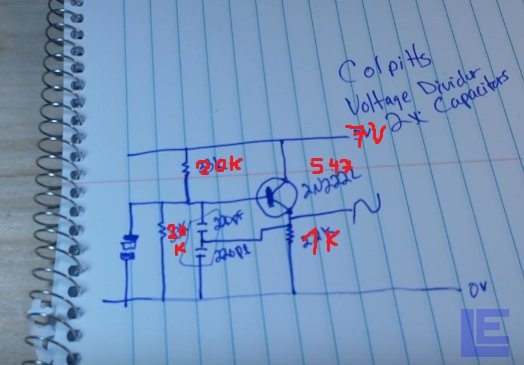 Colpitts
Voltage Divider
2x Capacitors
7V
20K
547
2N2222
220pF
20
K
220pF
1K
0V
LE